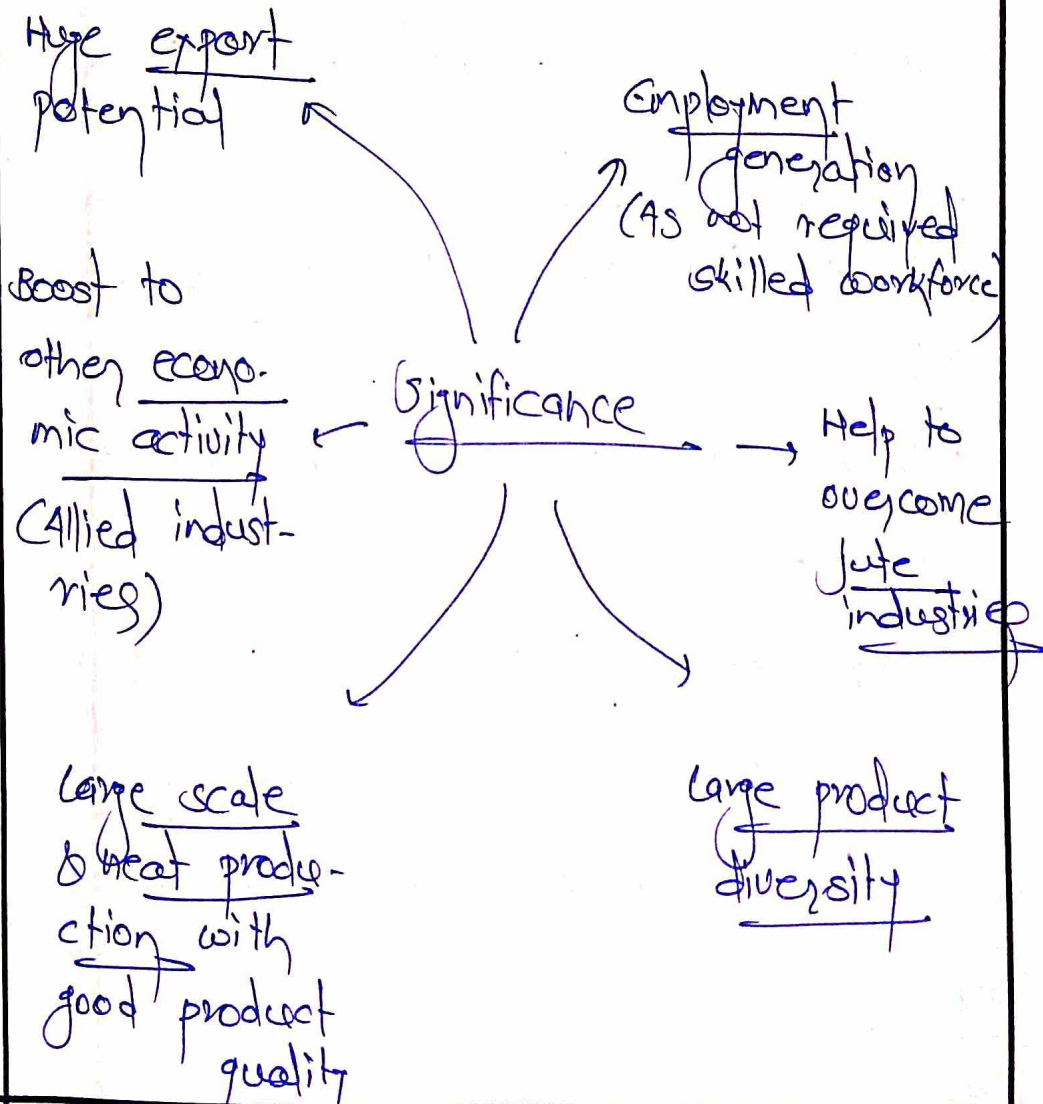 Huge export
potential
Employment
generation
(As not required
skilled workforce)
Boost to
other econo-
mic activity
(Allied indust-
ries)
Significance
Help to
overcome
jute
industries
Large scale
& neat produ-
ction with
good product
quality
Large product
diversity